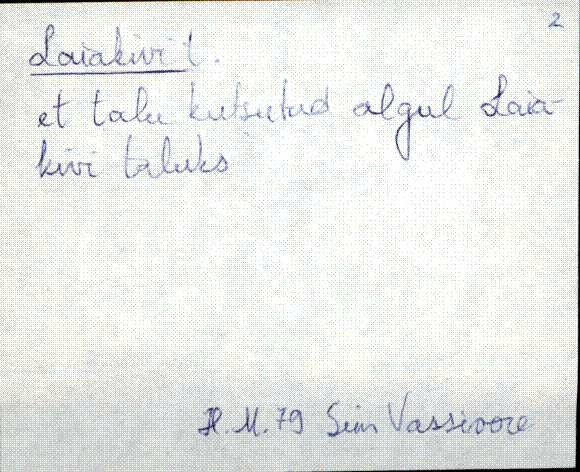 2
Laiakivi t.
et talu kutsutud algul Laia-
kivi taluks
H. M. 79 Siim Vassivere